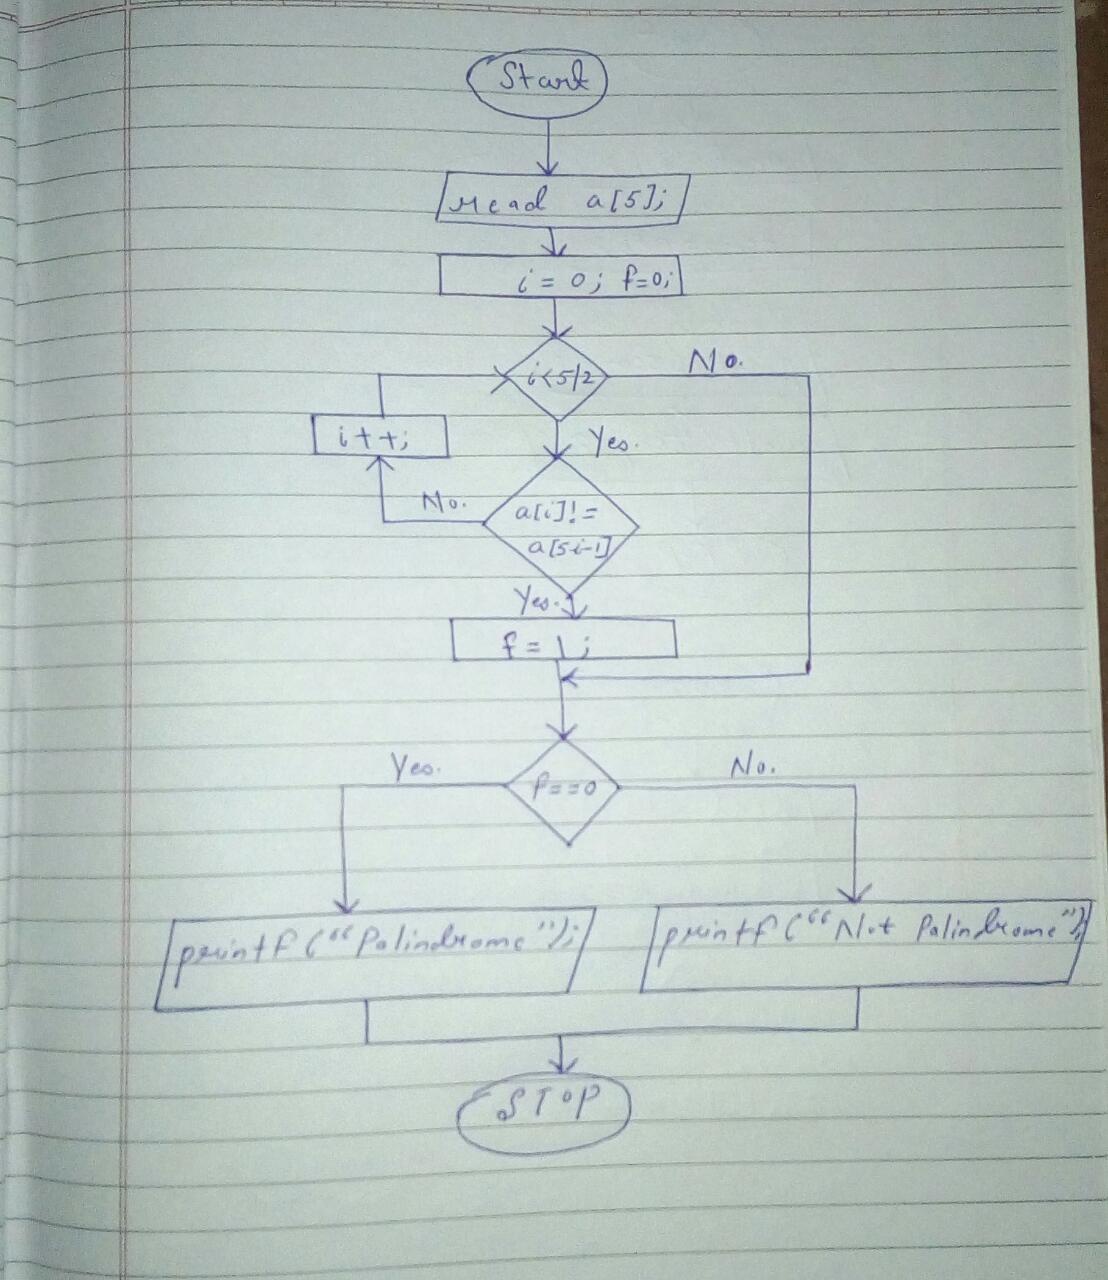 Start
read a[5];
i = 0; f=0;
i<5/2
No.
i++;
Yes.
No.
a[i]!=
a[5i-1]
Yes.
f = 1;
Yes.
No.
f==0
printf("Palindrome");
printf("Not Palindrome");
STOP